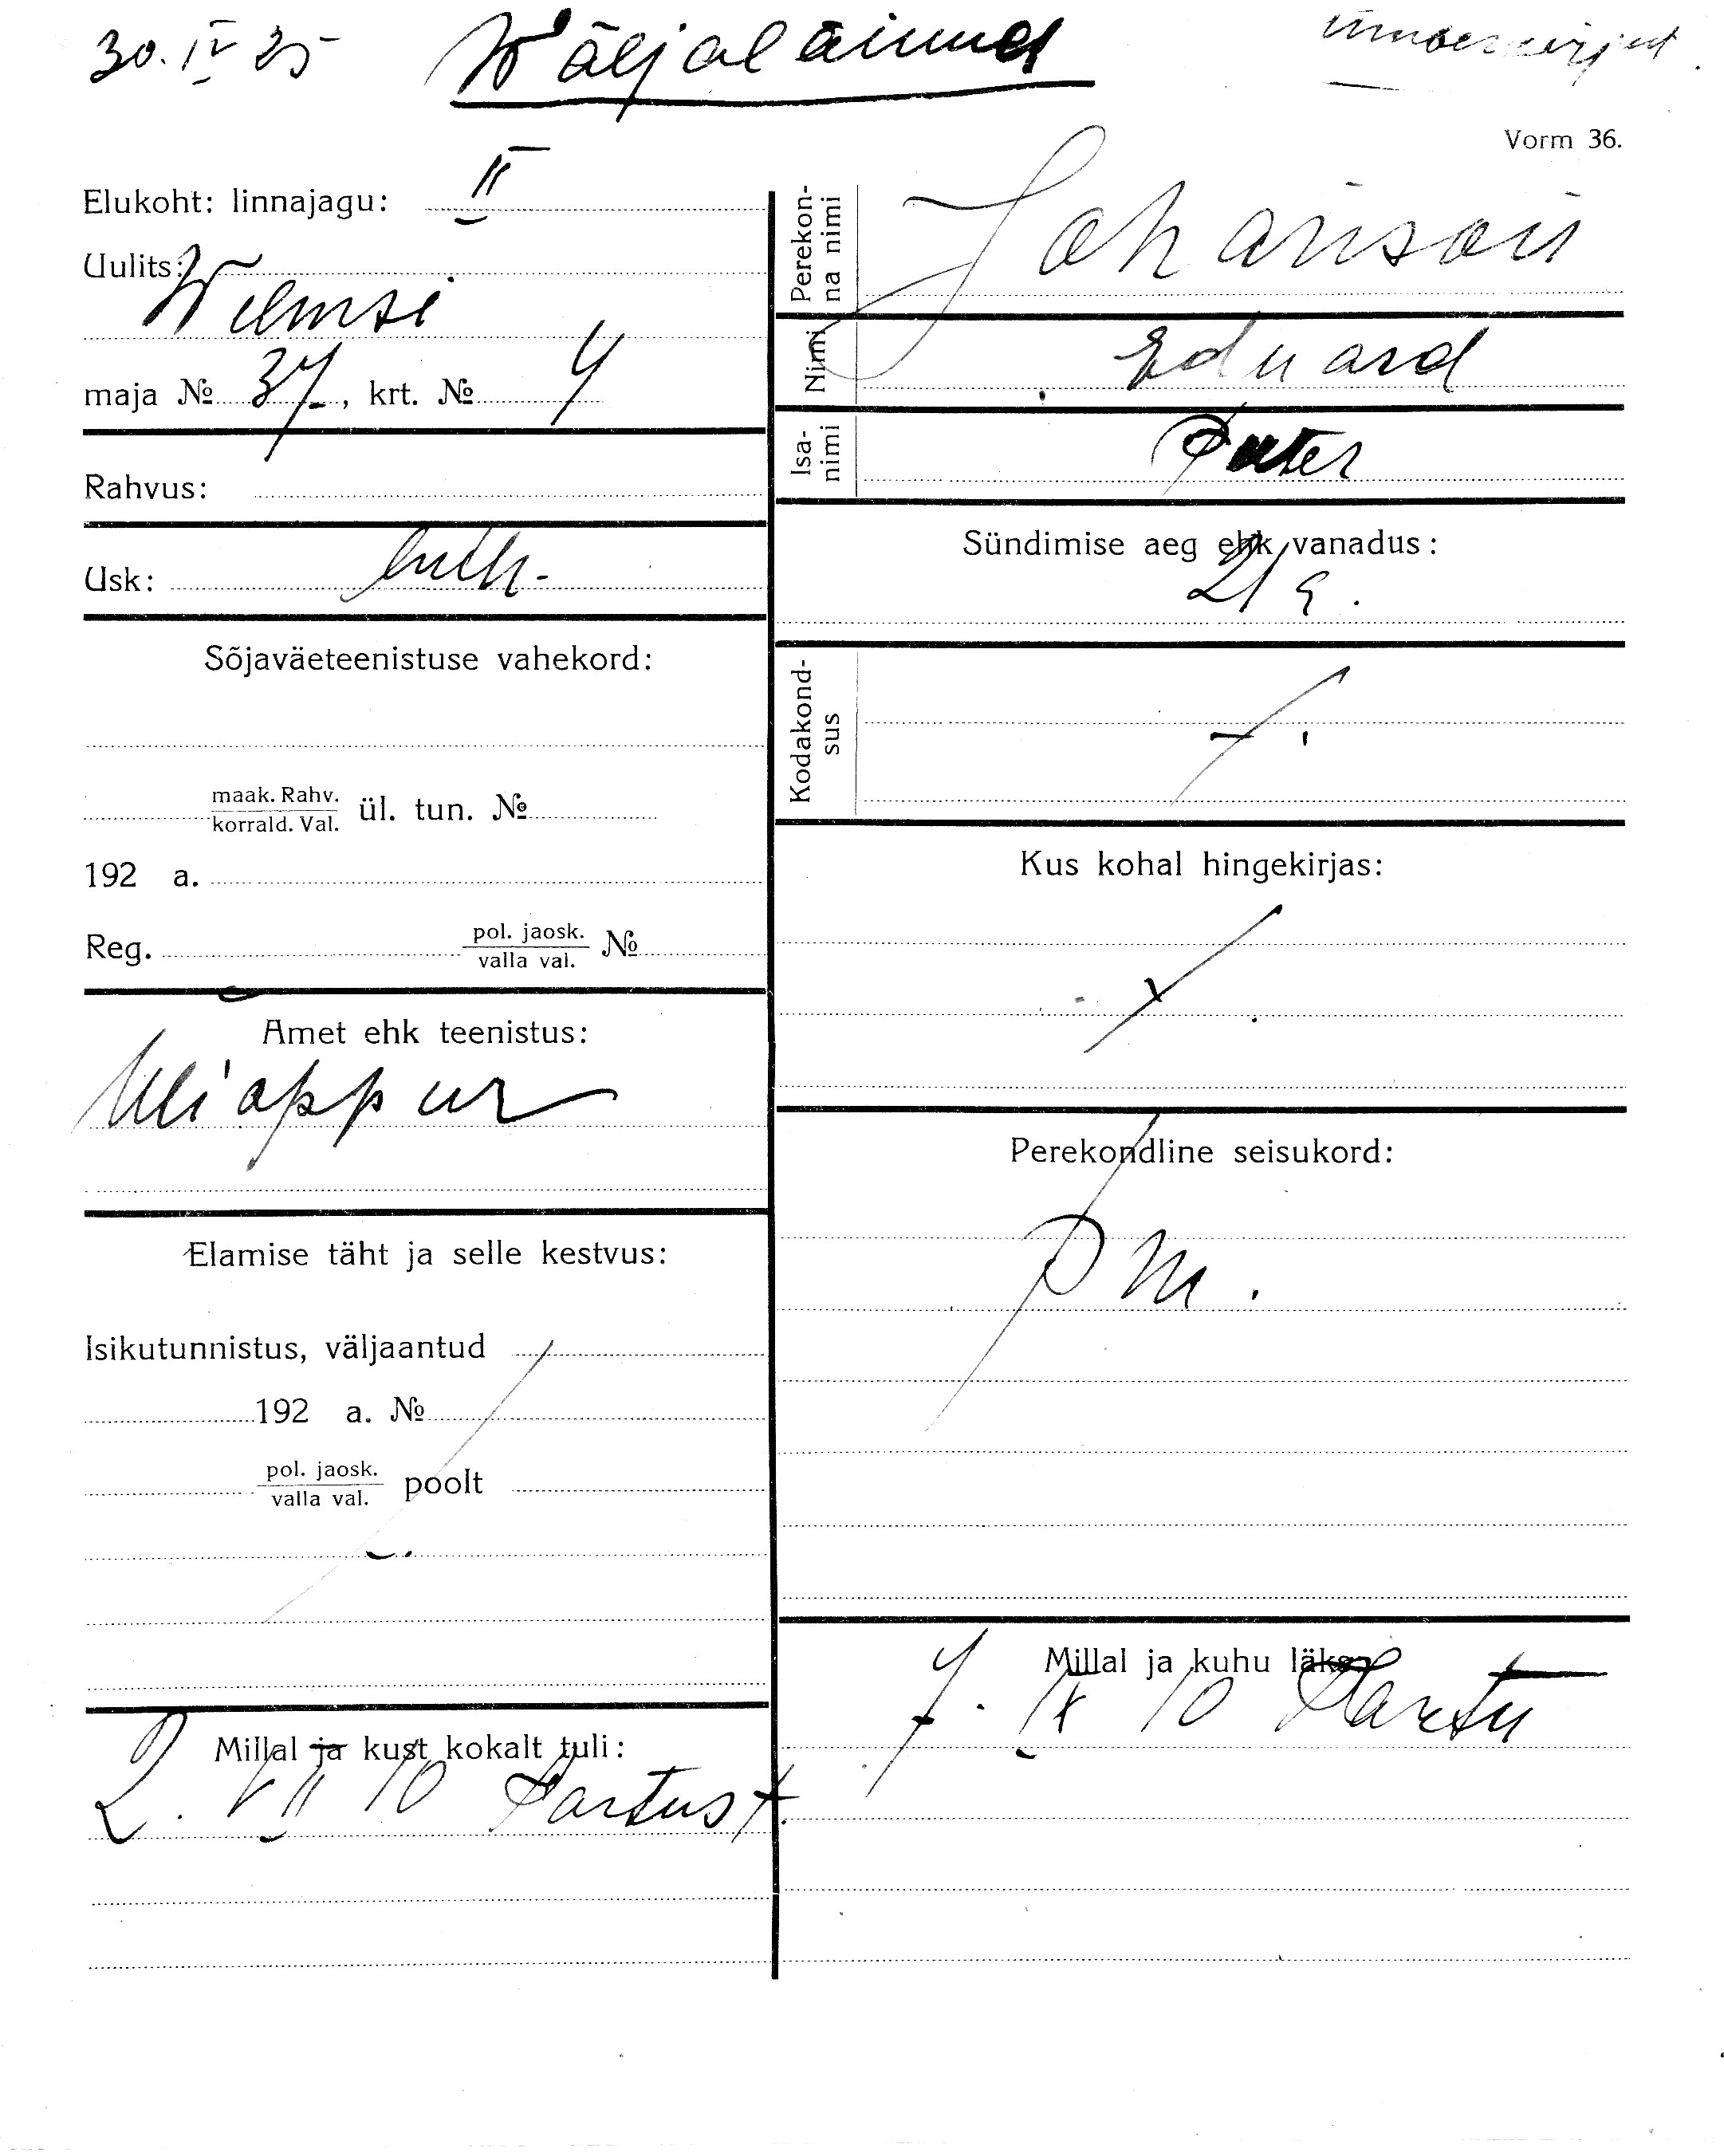 30. IV 25 Wäljaläinud ümberkirjut.
Vorm 36.
Elukoht: linnajagu: II
Uulits:
maja № 37, krt. № 4
Rahvus:
Usk: luth.
Sõjaväeteenistuse vahekord:
maak. Rahv.
korrald. Val. ül. tun. №
192 a.
Reg. pol. jaosk.
valla val. №
Amet ehk teenistus:
Elamise täht ja selle kestvus:
Isikutunnistus, väljaantud
192 a. №
pol. jaosk.
valla val. poolt
Millal ja kust kokalt tuli:
2. VII 10 Tartust.
Perekon-
na nimi Johanson
Nimi Eduard
Isa-
nimi Peter
Sündimise aeg ehk vanadus:
21 a.
Kodakond-
sus
Kus kohal hingekirjas:
Perekondline seisukord:
P m.
Millal ja kuhu läks:
7. IX 10 Tartu